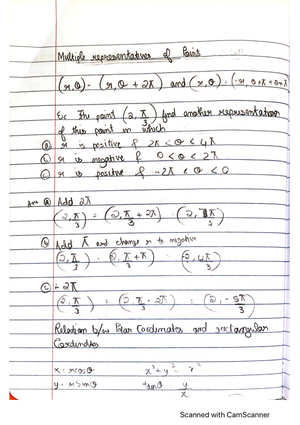 Multiple representations of Point
(r, θ) = (r, θ + 2π) and (r, θ) = (-r, θ + π + 2nπ
Ex: The point (2, π/3) find another representation
of this point in which
(a) r is positive & 2π < θ < 4π
(b) r is negative & 0 < θ < 2π
(c) r is positive & -2π < θ < 0
Ans (a) Add 2π
(2, π/3) = (2, π/3 + 2π) = (2, 7π/3)
(b) Add π and change r to negative
(2, π/3) = (-2, π/3 + π) = (-2, 4π/3)
(c) - 2π
(2, π/3) = (2, π/3 - 2π) = (2, -5π/3)
Relation b/w Polar Coordinates and rectangular
Coordinates
x = r cosθ x² + y² = r²
y = r sinθ tanθ = y/x
Scanned with CamScanner